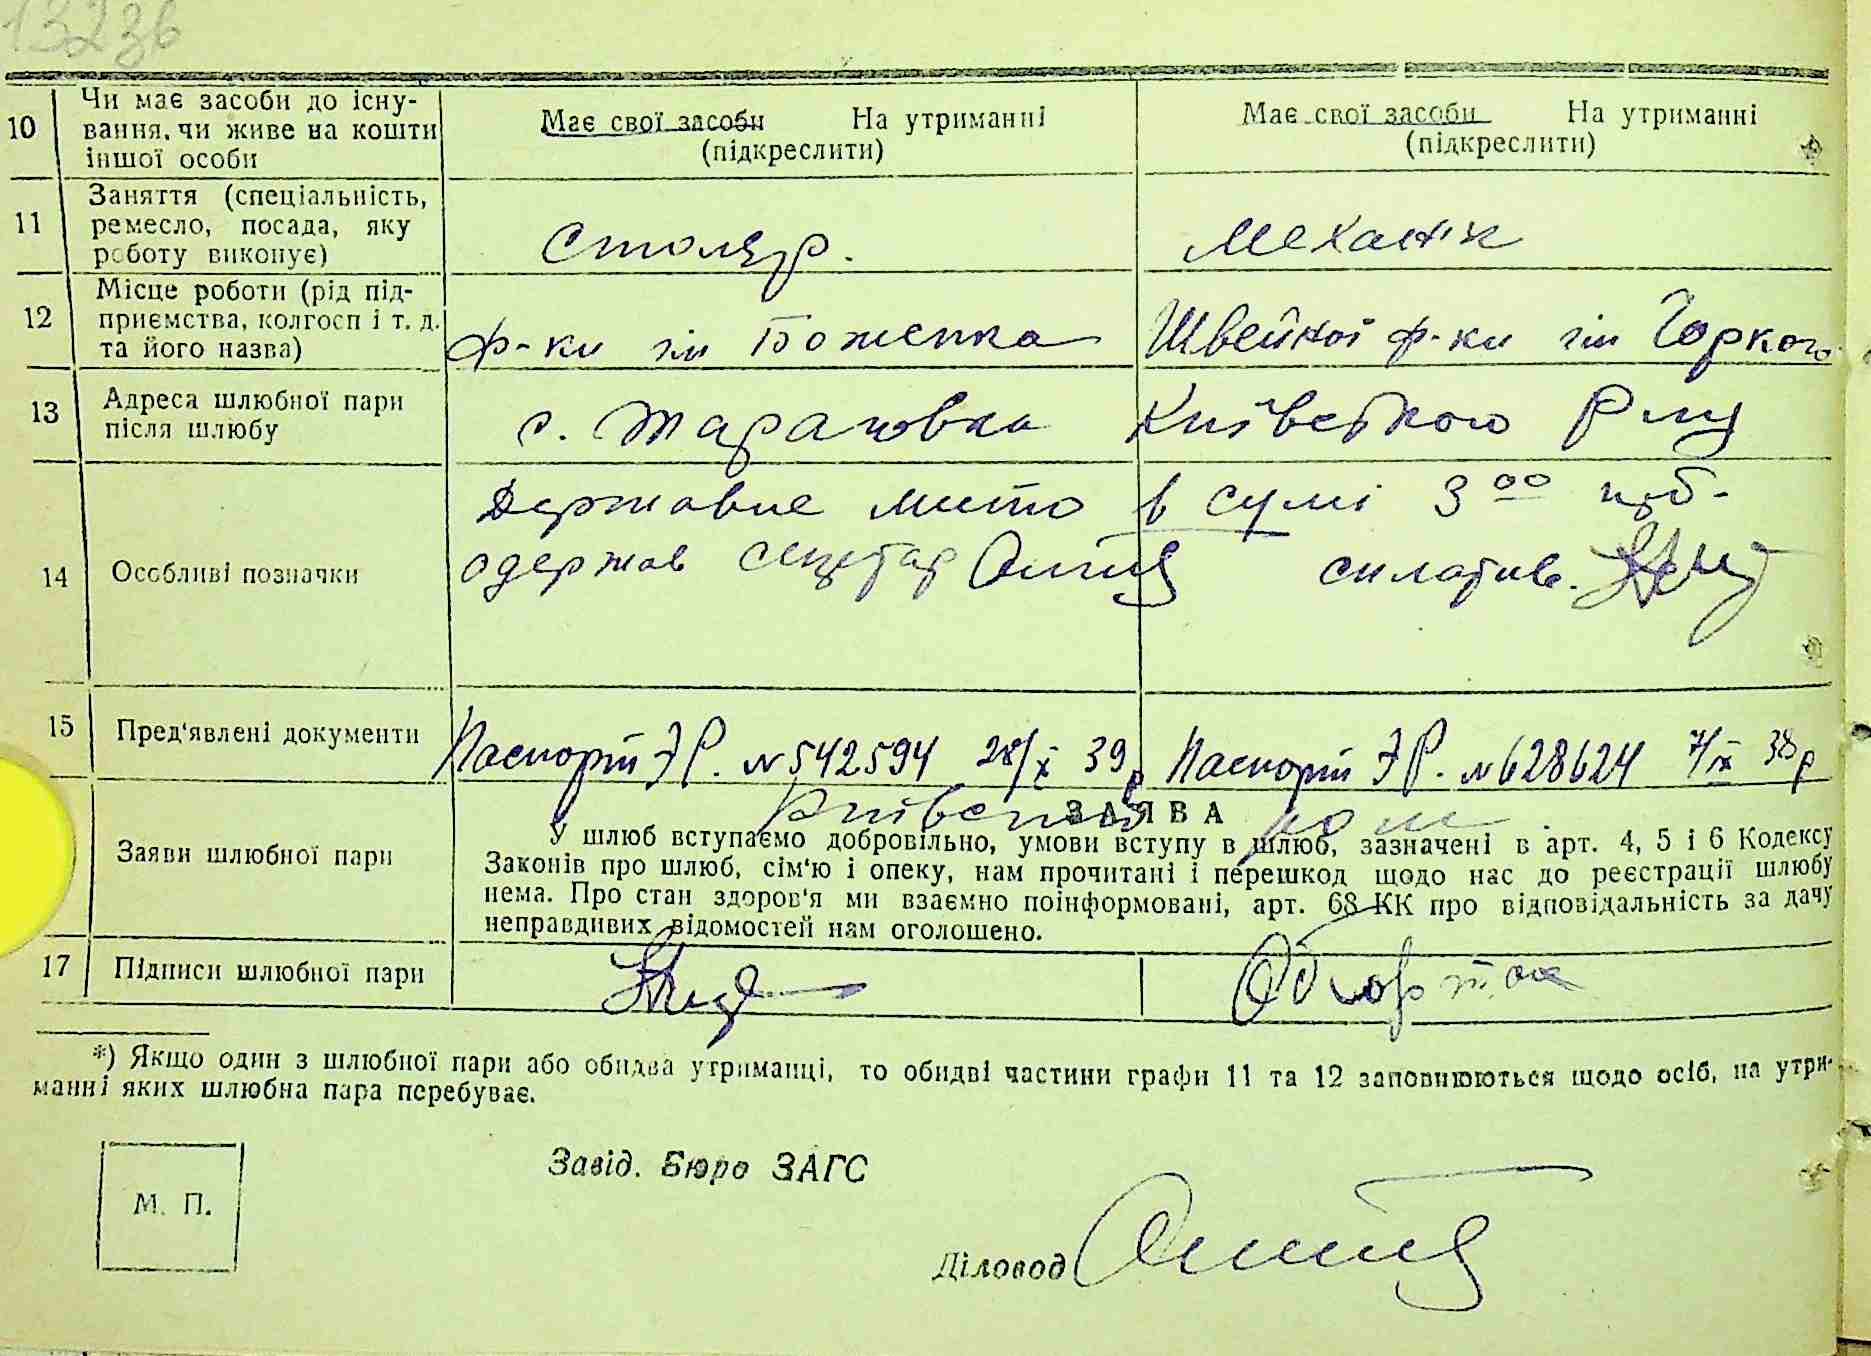 13236
10 Чи має засоби до існу-
вання, чи живе на кошти
іншої особи
Має свої засоби На утриманні
(підкреслити)
Має свої засоби На утриманні
(підкреслити)
11 Заняття (спеціальність,
ремесло, посада, яку
роботу виконує)
столяр.
механік
12 Місце роботи (рід під-
приємства, колгосп і т. д.
та його назва)
ф-ки ім Боженка
Швейної ф-ки ім Горкого
13 Адреса шлюбної пари
після шлюбу
с. Тарасовка Київського р-ну
14 Особливі позначки
Державне мито в сумі 3 00 крб.
одержав секретар сплатив.
15 Пред'явлені документи
Паспорт ЭР. № 542594 28/X 39р
Паспорт ЭР. № 628624 7/IX 38р
Київський
Заяви шлюбної пари
ЗАЯВА
У шлюб вступаємо добровільно, умови вступу в шлюб, зазначені в арт. 4, 5 і 6 Кодексу
Законів про шлюб, сім'ю і опеку, нам прочитані і перешкод щодо нас до реєстрації шлюбу
нема. Про стан здоров'я ми взаємно поінформовані, арт. 68 КК про відповідальність за дачу
неправдивих відомостей нам оголошено.
17 Підписи шлюбної пари
*) Якщо один з шлюбної пари або обидва утриманці, то обидві частини графи 11 та 12 заповнюються щодо осіб, на утри-
манні яких шлюбна пара перебуває.
М. П.
Завід. Бюро ЗАГС
Діловод